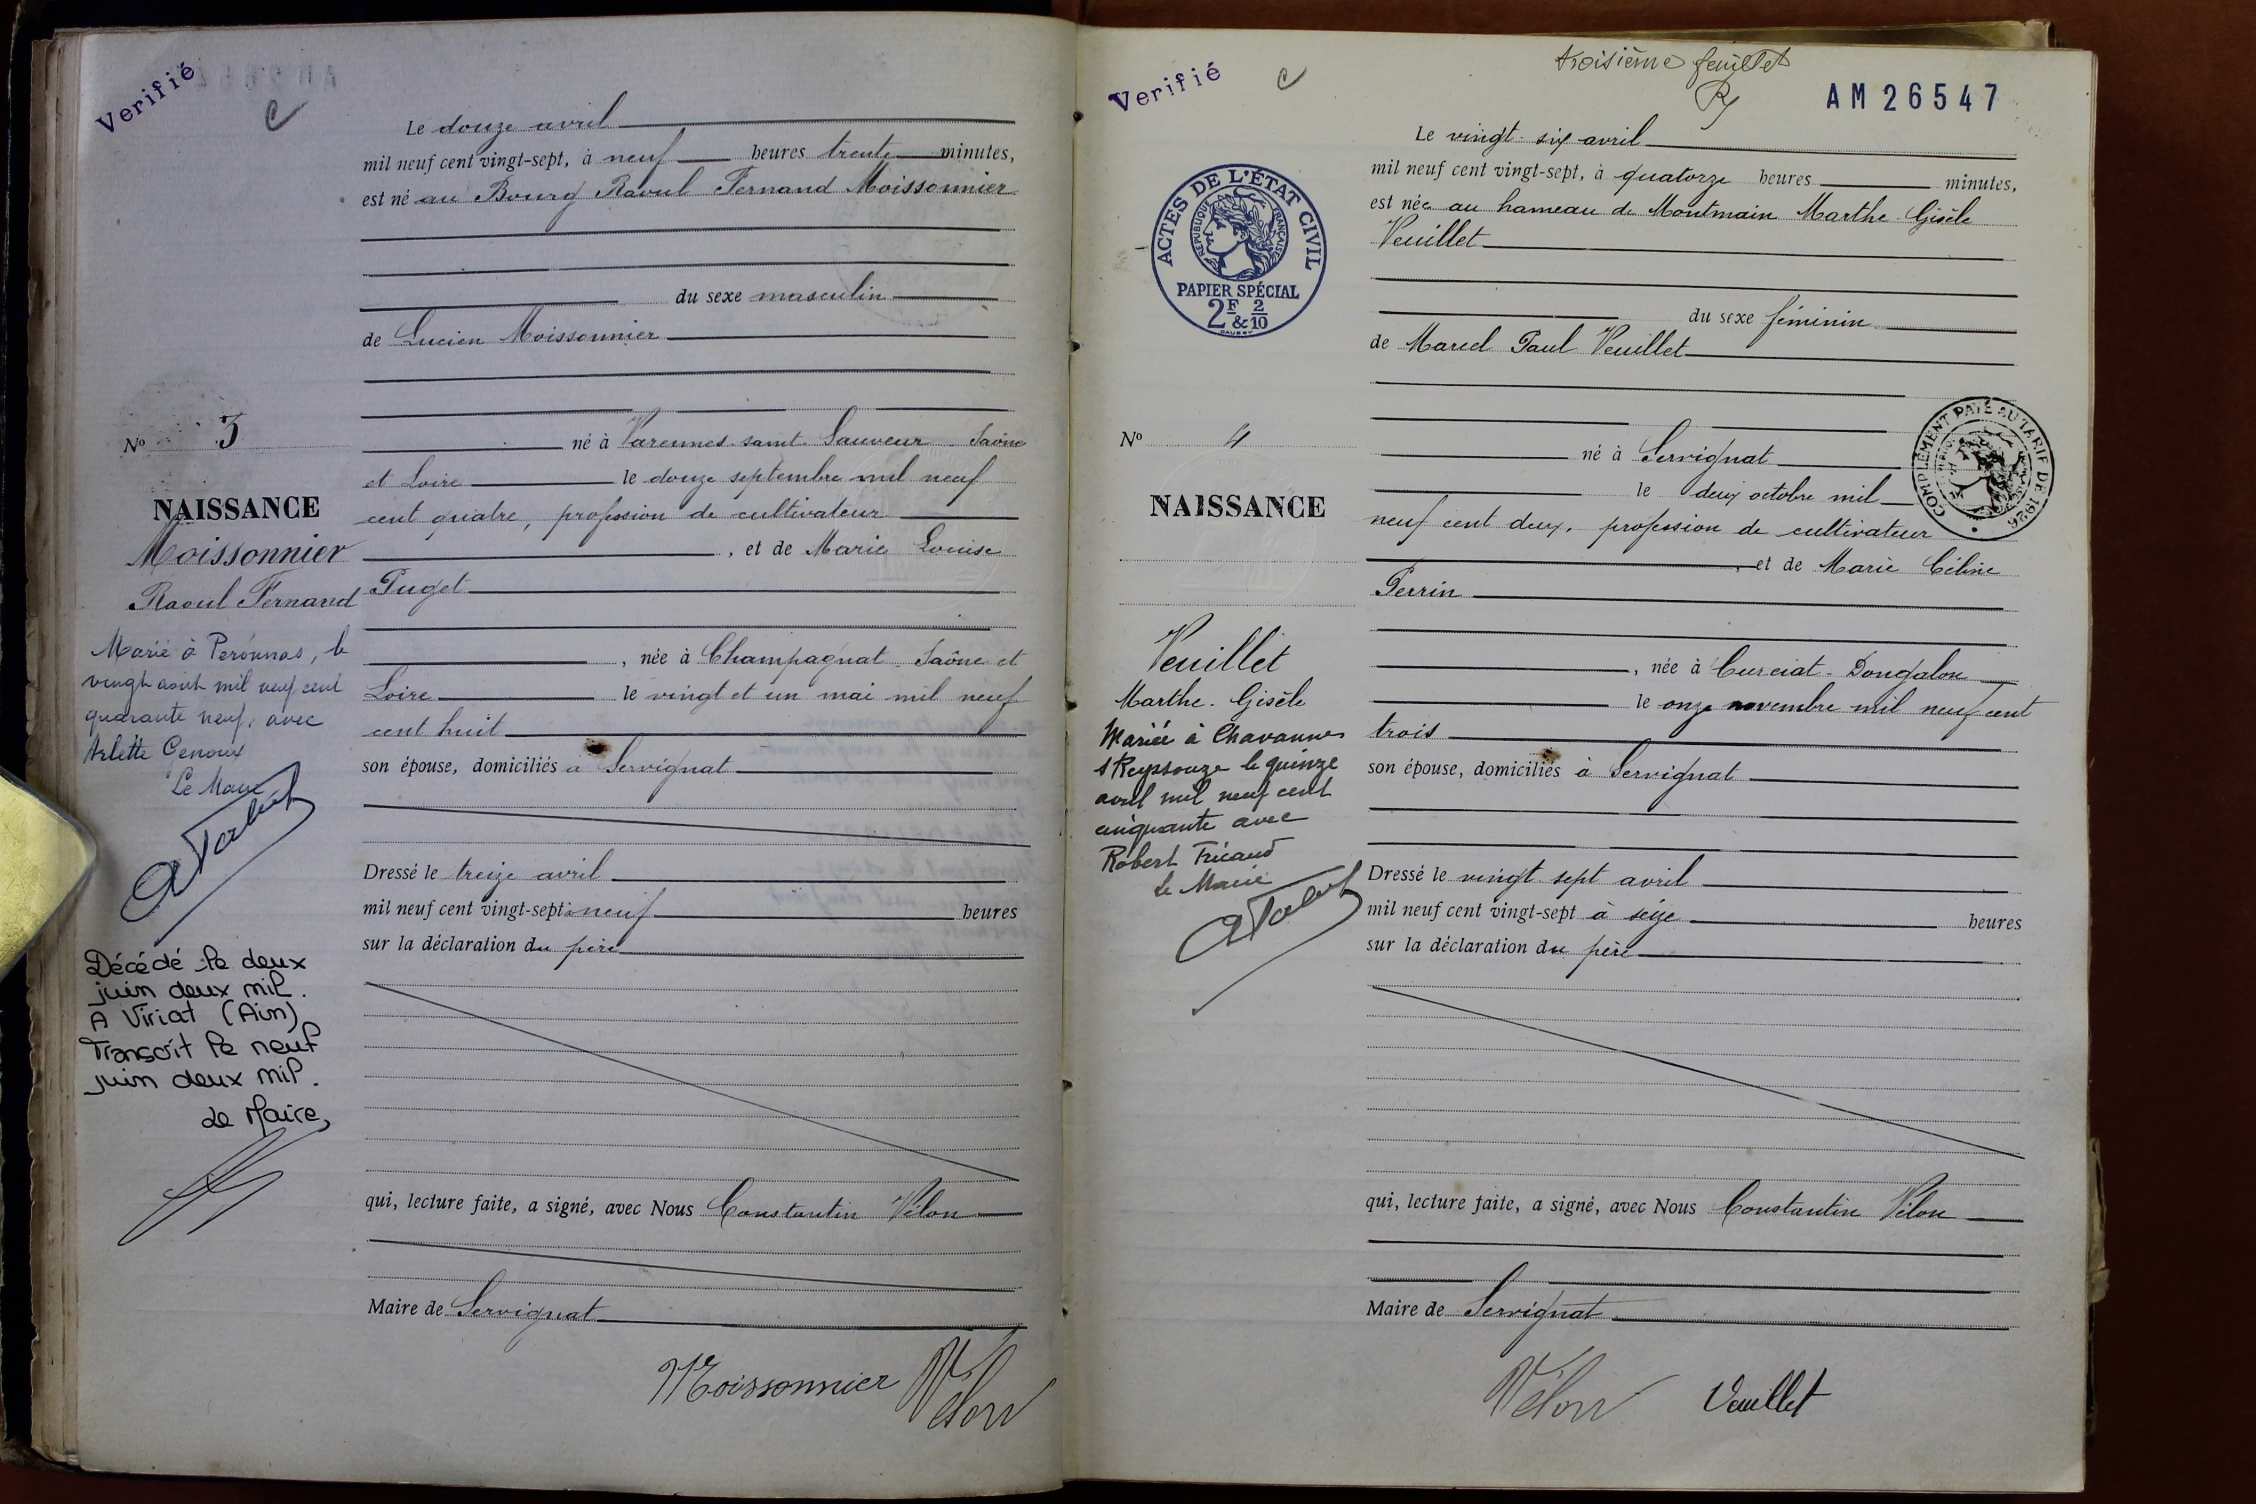 Verifié
C
Le douze avril
mil neuf cent vingt-sept, à neuf heures trente minutes,
est né au Bourg Raoul Fernand Moissonnier
du sexe masculin
de Lucien Moissonnier
né à Varennes saint Sauveur Saône
et Loire le douze septembre mil neuf
cent quatre, profession de cultivateur
, et de Marie Louise
Puget
, née à Champagnat Saône et
Loire le vingt et un mai mil neuf
cent huit
son épouse, domiciliés à Servignat
Dressé le treize avril
mil neuf cent vingt-sept à neuf heures
sur la déclaration du père
qui, lecture faite, a signé, avec Nous Constantin Vélon
Maire de Servignat
Moissonnier Vélon
No 3
NAISSANCE
Moissonnier
Raoul Fernand
Marié à Peronnas, le
vingt août mil neuf cent
quarante neuf, avec
Arlette Genoux
Le Maire
Décédé le deux
juin deux mil.
A Viriat (Ain)
Transcrit le neuf
juin deux mil.
Le Maire,
Verifié
C
troisième feuillet
AM 26547
ACTES DE L'ÉTAT CIVIL
RÉPUBLIQUE FRANÇAISE
PAPIER SPÉCIAL
2F & 2/10
DAUSSY
Le vingt-six avril
mil neuf cent vingt-sept, à quatorze heures minutes,
est née au hameau de Montmain Marthe Gisèle
Veuillet
du sexe féminin
de Marcel Paul Veuillet
COMPLÉMENT PAYÉ AU TARIF DE 1926
né à Servignat
le deux octobre mil
neuf cent deux, profession de cultivateur
, et de Marie Céline
Perrin
, née à Curciat-Dongalon
le onze novembre mil neuf cent
trois
son épouse, domiciliés à Servignat
Dressé le vingt sept avril
mil neuf cent vingt-sept à seize heures
sur la déclaration du père
qui, lecture faite, a signé, avec Nous Constantin Vélon
Maire de Servignat
Vélon Veuillet
No 4
NAISSANCE
Veuillet
Marthe-Gisèle
Mariée à Chavannes
s/Reyssouze le quinze
avril mil neuf cent
cinquante avec
Robert Fricaud
Le Maire